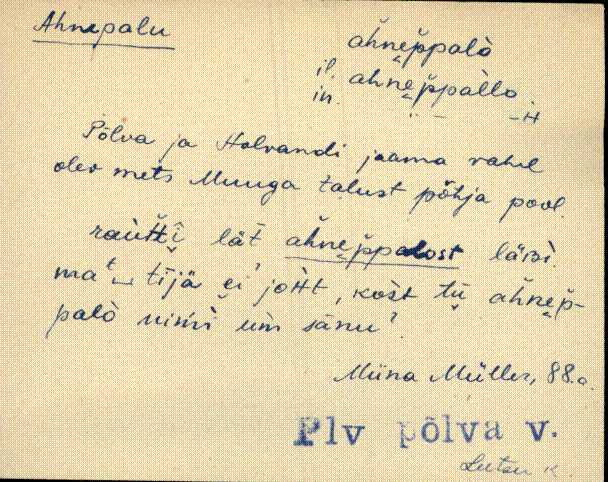 Ahnepalu
ahne̬p̆palò
il. ahne̬p̆pàllo
in. -H
Põlva ja Holvandi jaama vahel
olev mets Muuga talust põhja pool.
lät ahne̬p̆palost läbi.
ma tijä ei, kost tu̬ ahne̬p̆-
palò nimi um sānu?
Miina Müller, 88.a.
Plv põlva v.